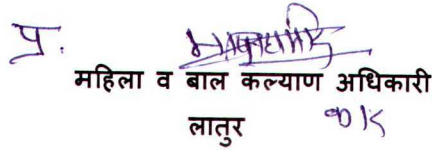 प्र.
महिला व बाल कल्याण अधिकारी
लातुर